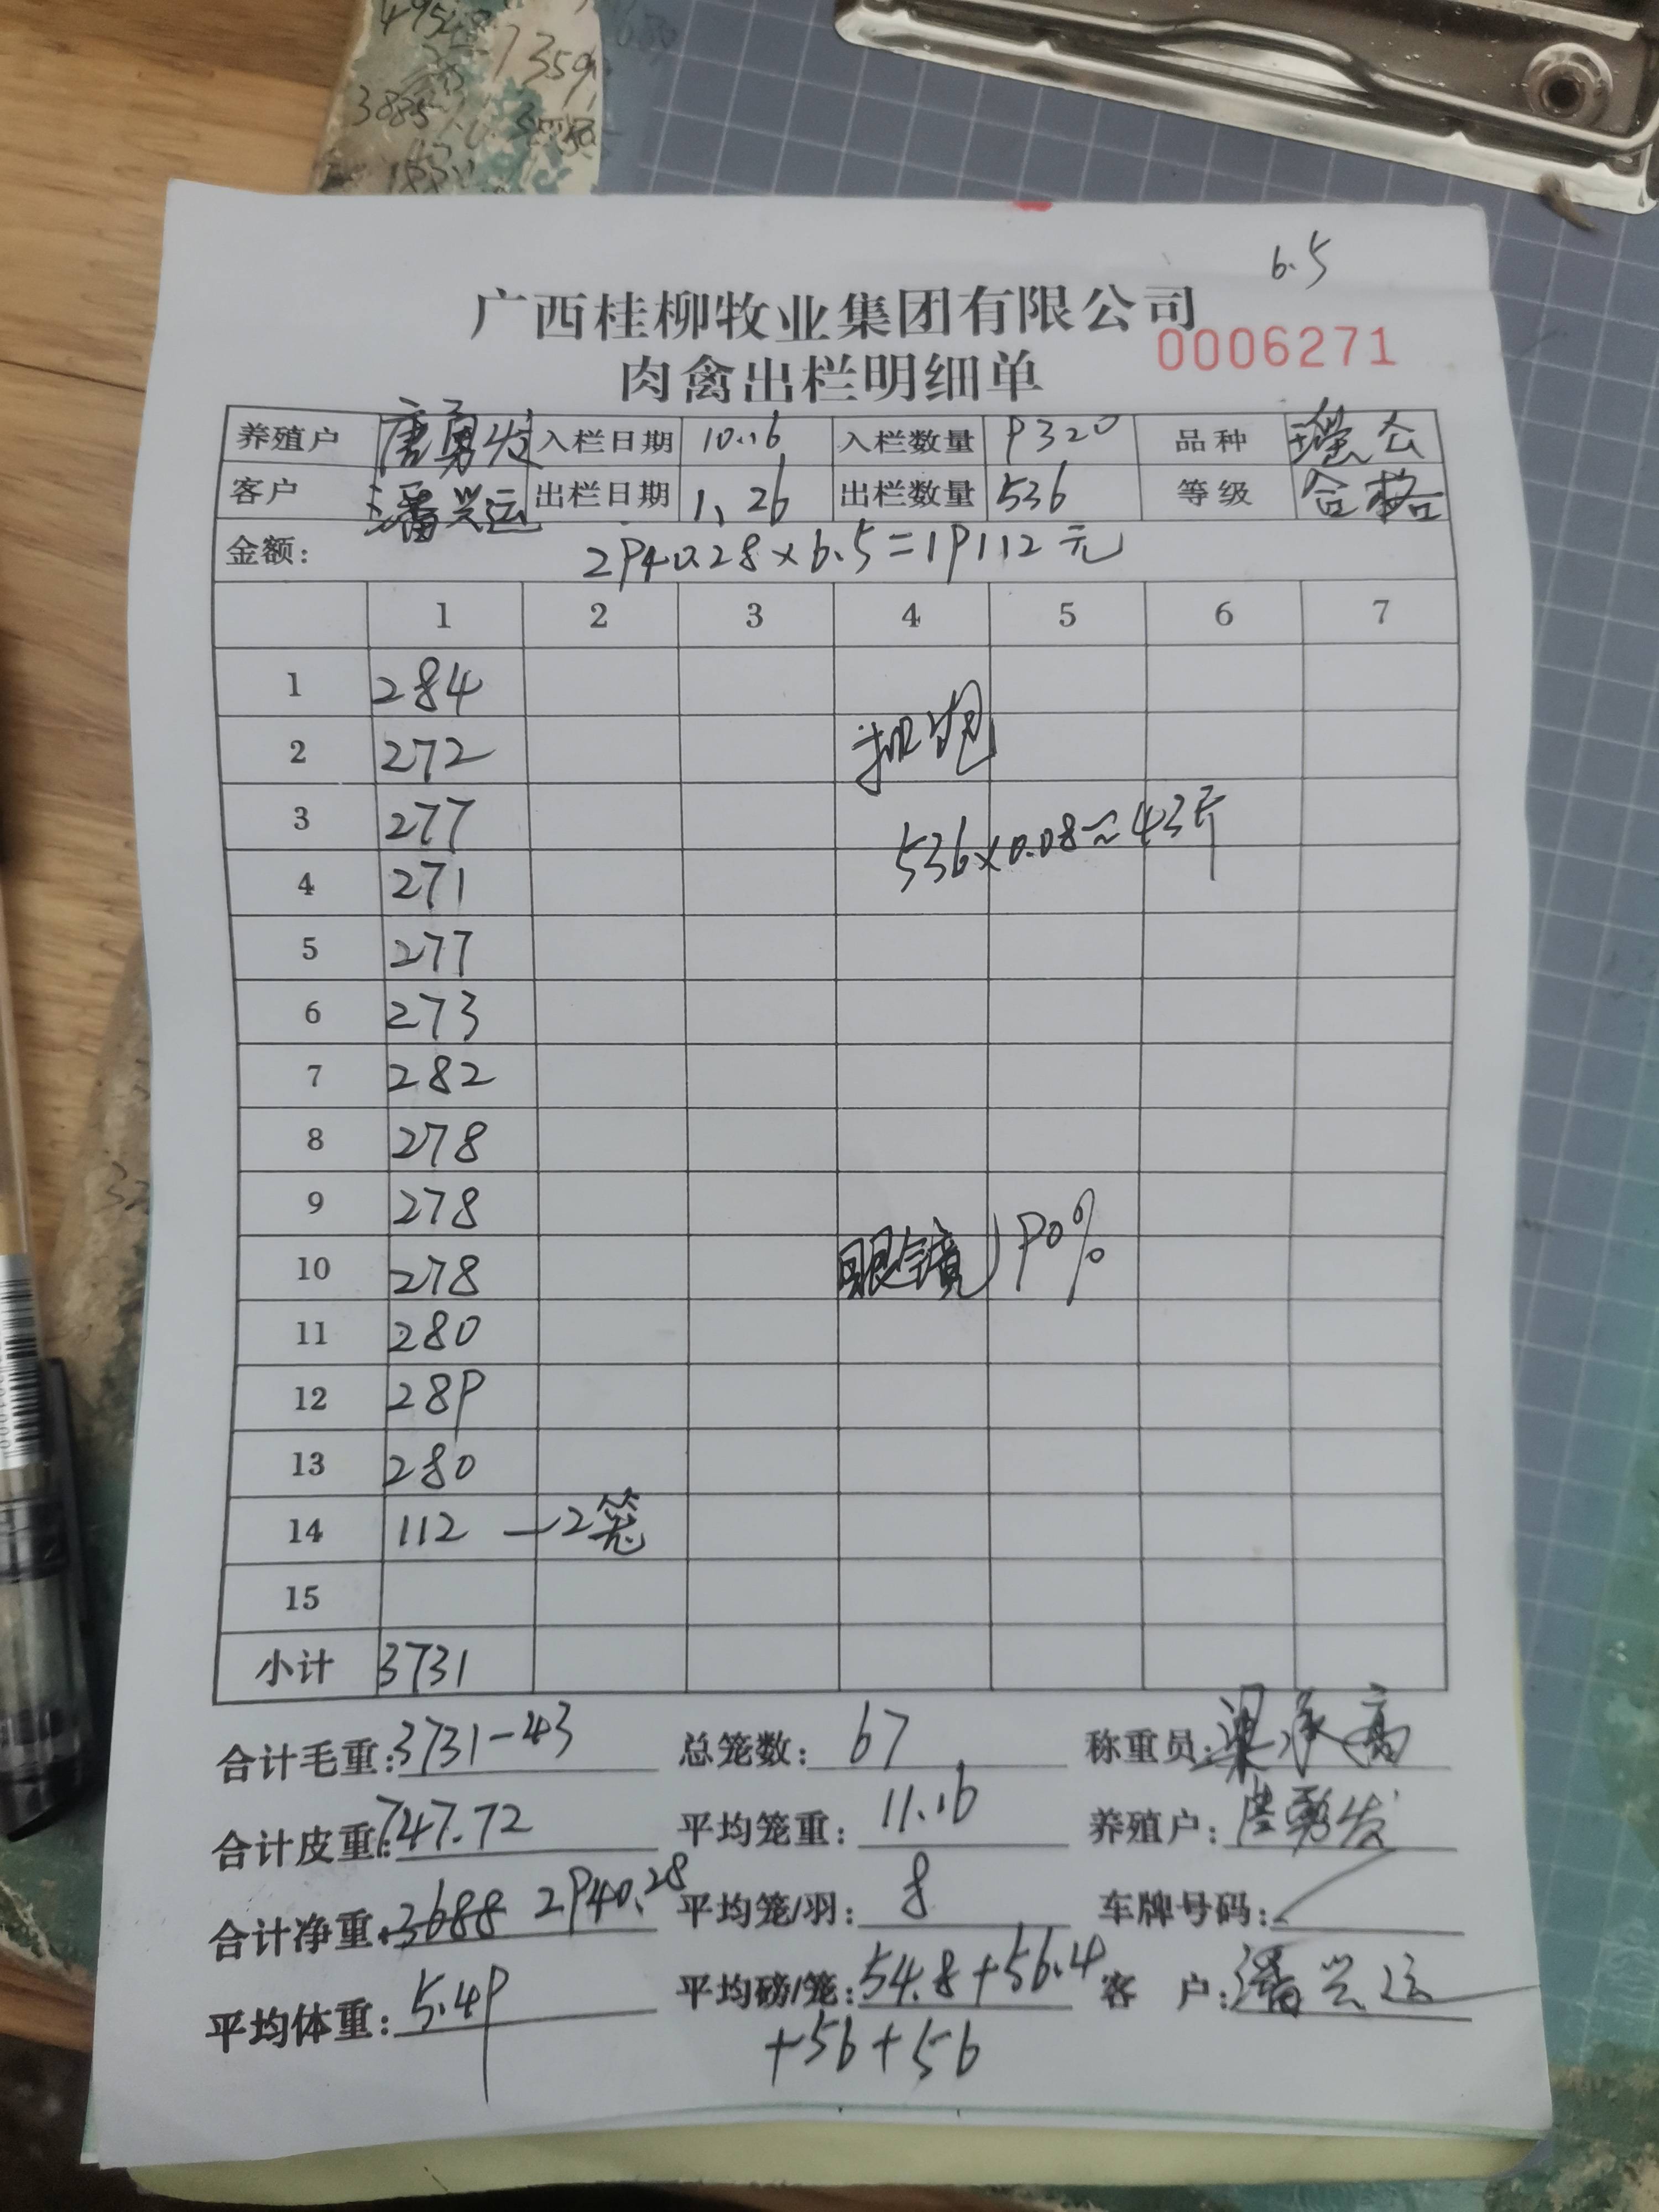 6.5
广西桂柳牧业集团有限公司
0006271
肉禽出栏明细单
养殖户 唐勇发 入栏日期 10.16 入栏数量 9320 品种 瑶公
客户 潘兴运 出栏日期 1、26 出栏数量 536 等级 合格
金额: 2940.28×6.5=19112元
1 2 3 4 5 6 7
1 284
2 272
扣饱
3 277
536×0.08≈43斤
4 271
5 277
6 273
7 282
8 278
9 278
10 278
眼镜 90%
11 280
12 289
13 280
14 112 —2笼
15
小计 3731
合计毛重: 3731-43 总笼数: 67 称重员: 梁承高
合计皮重: 747.72 平均笼重: 11.16 养殖户: 唐勇发
合计净重: 3688 2940.28 平均笼/羽: 8 车牌号码:
平均体重: 5.49 平均磅/笼: 54.8+56.4 客 户: 潘兴运
+56+56